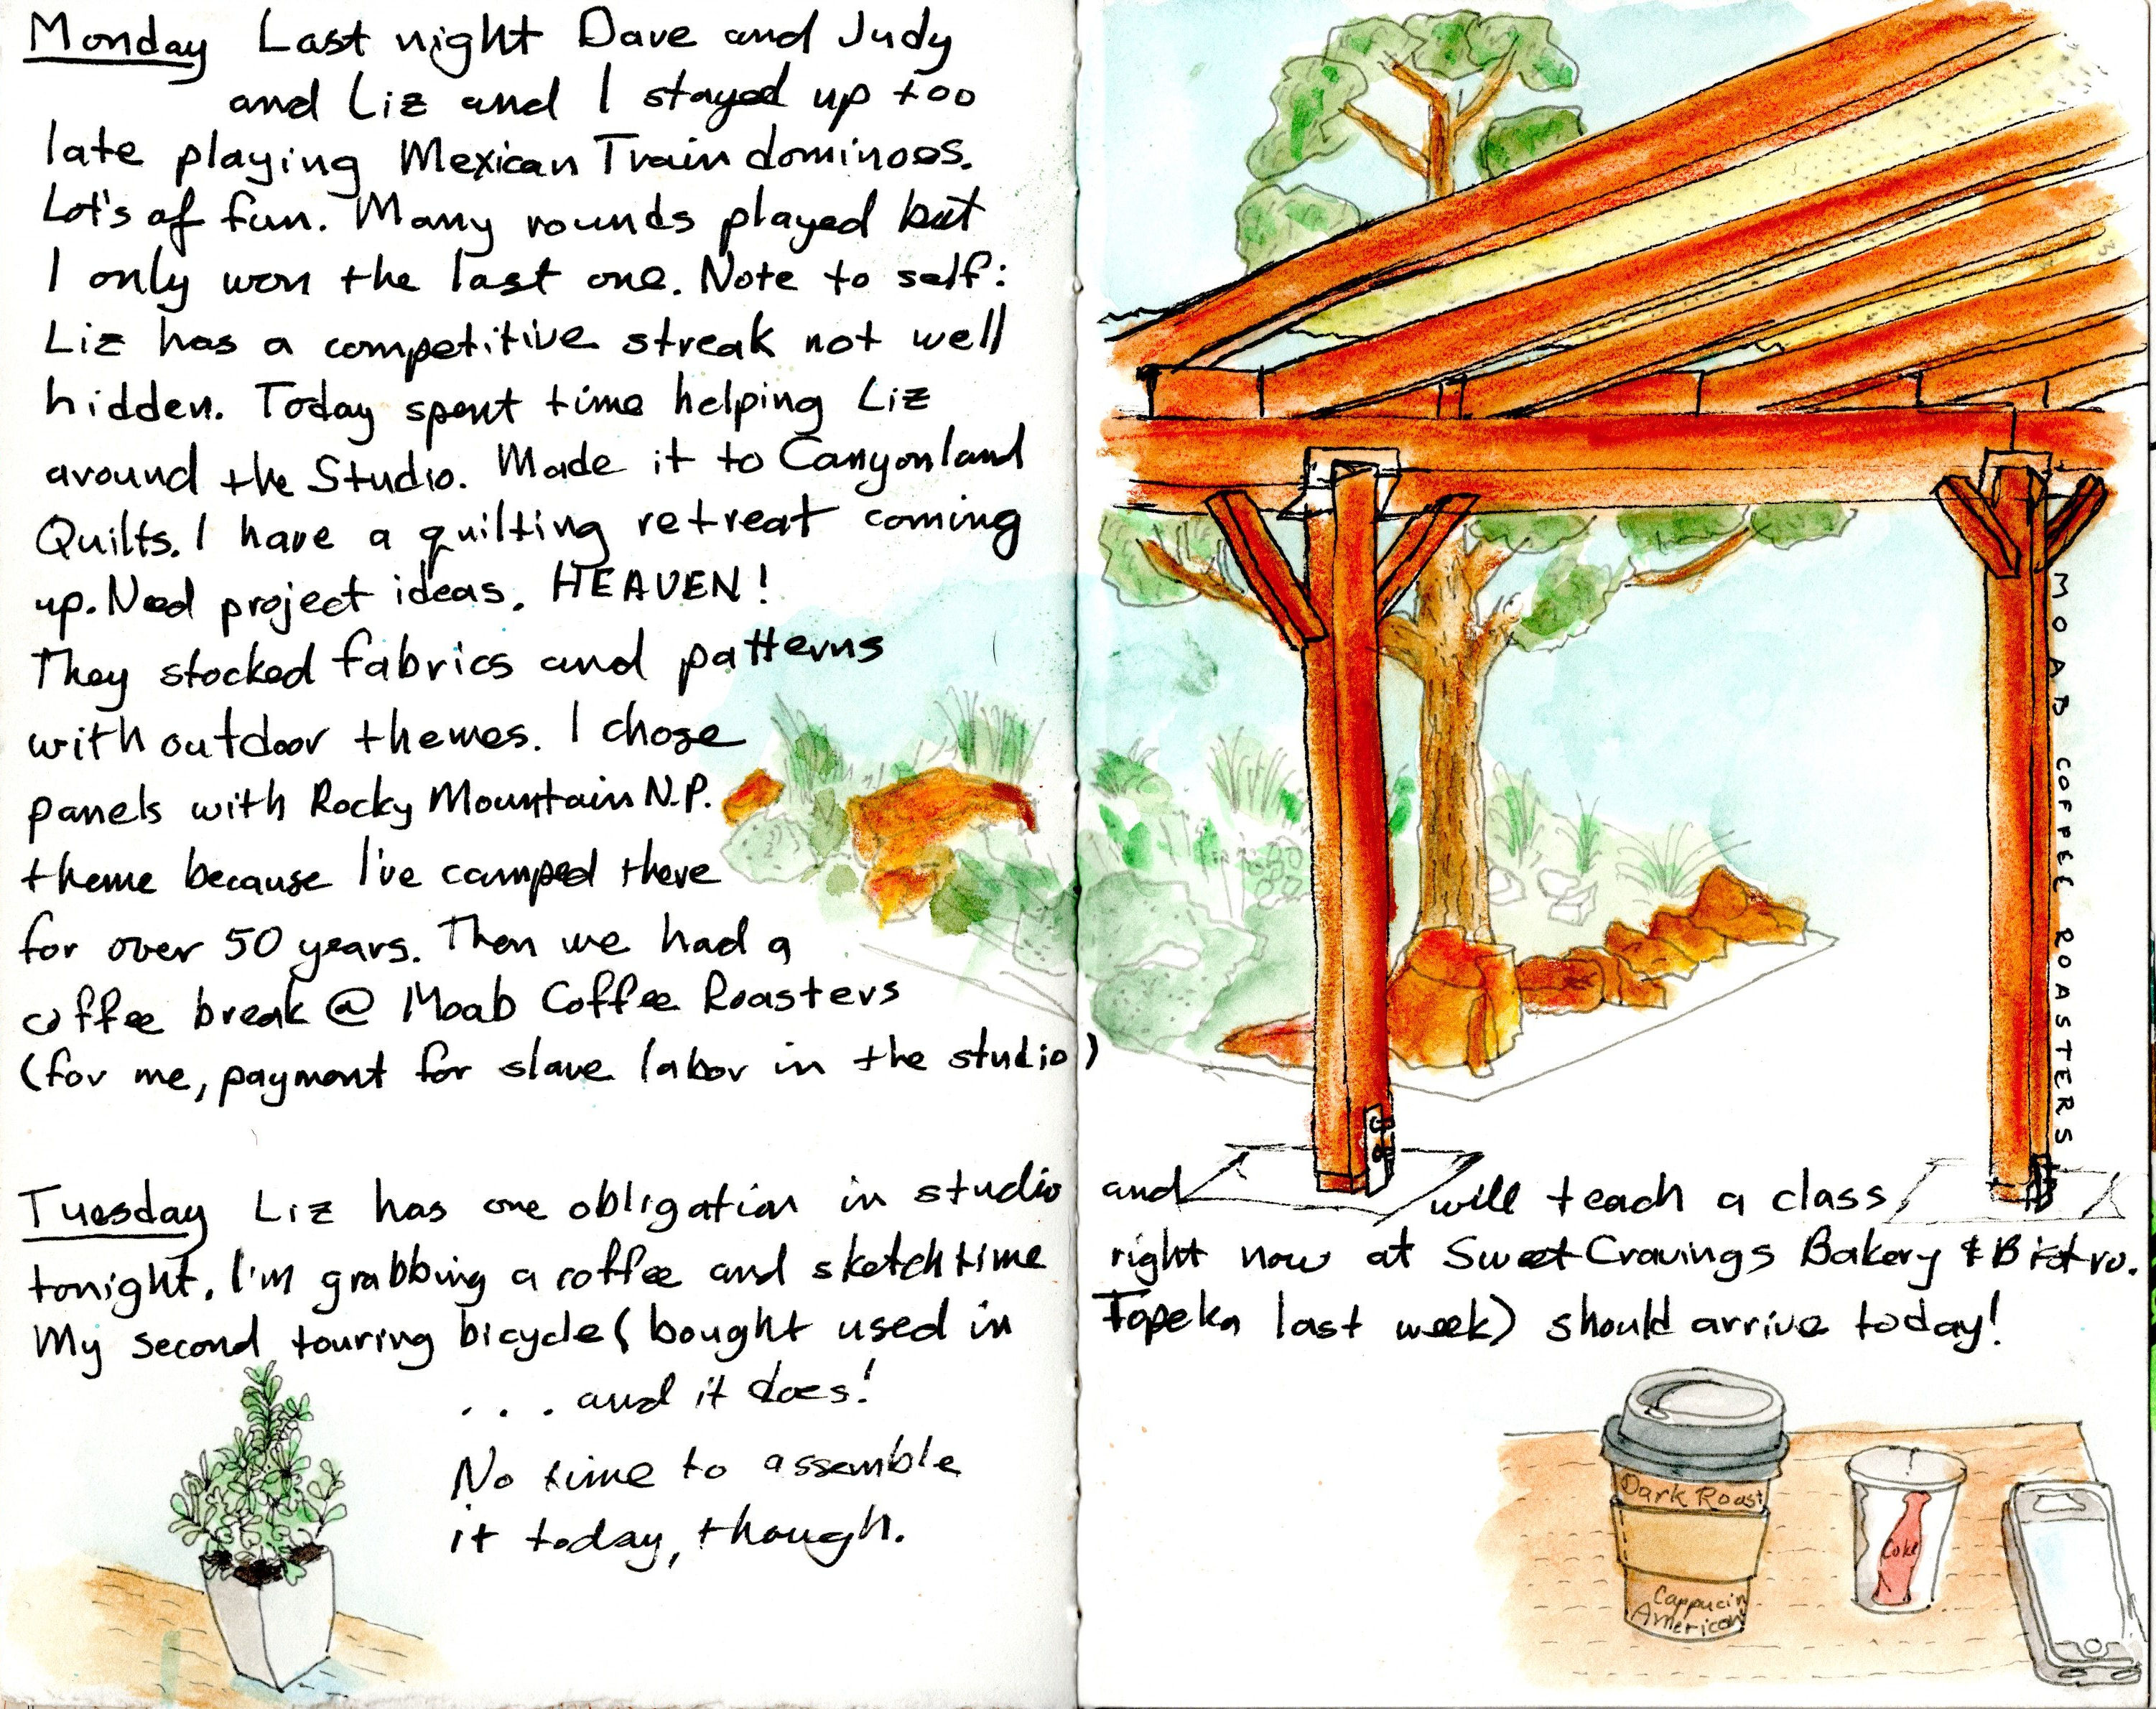 Monday Last night Dave and Judy
and Liz and I stayed up too
late playing Mexican Train dominoes.
Lot's of fun. Many rounds played but
I only won the last one. Note to self:
Liz has a competitive streak not well
hidden. Today spent time helping Liz
around the Studio. Made it to Canyonland
Quilts. I have a quilting retreat coming
up. Need project ideas. HEAVEN!
They stocked fabrics and patterns
with outdoor themes. I chose
panels with Rocky Mountain N.P.
theme because I've camped there
for over 50 years. Then we had a
coffee break @ Moab Coffee Roasters
(for me, payment for slave labor in the studio)
MOAB COFFEE ROASTERS
Tuesday Liz has one obligation in studio and will teach a class
tonight. I'm grabbing a coffee and sketch time right now at Sweet Cravings Bakery & Bistro.
My second touring bicycle (bought used in Topeka last week) should arrive today!
. . . and it does!
No time to assemble
it today, though.
Dark Roast
Cappucin
American
Coke